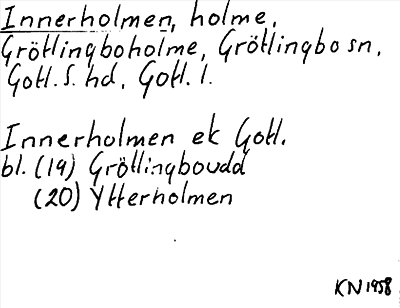 Innerholmen, holme,
Grötlingboholme, Grötlingbo sn,
Gotl. S. hd, Gotl. l.
Innerholmen ek Gotl.
bl. (19) Grötlingboudd
(20) Ytterholmen
KN 1958